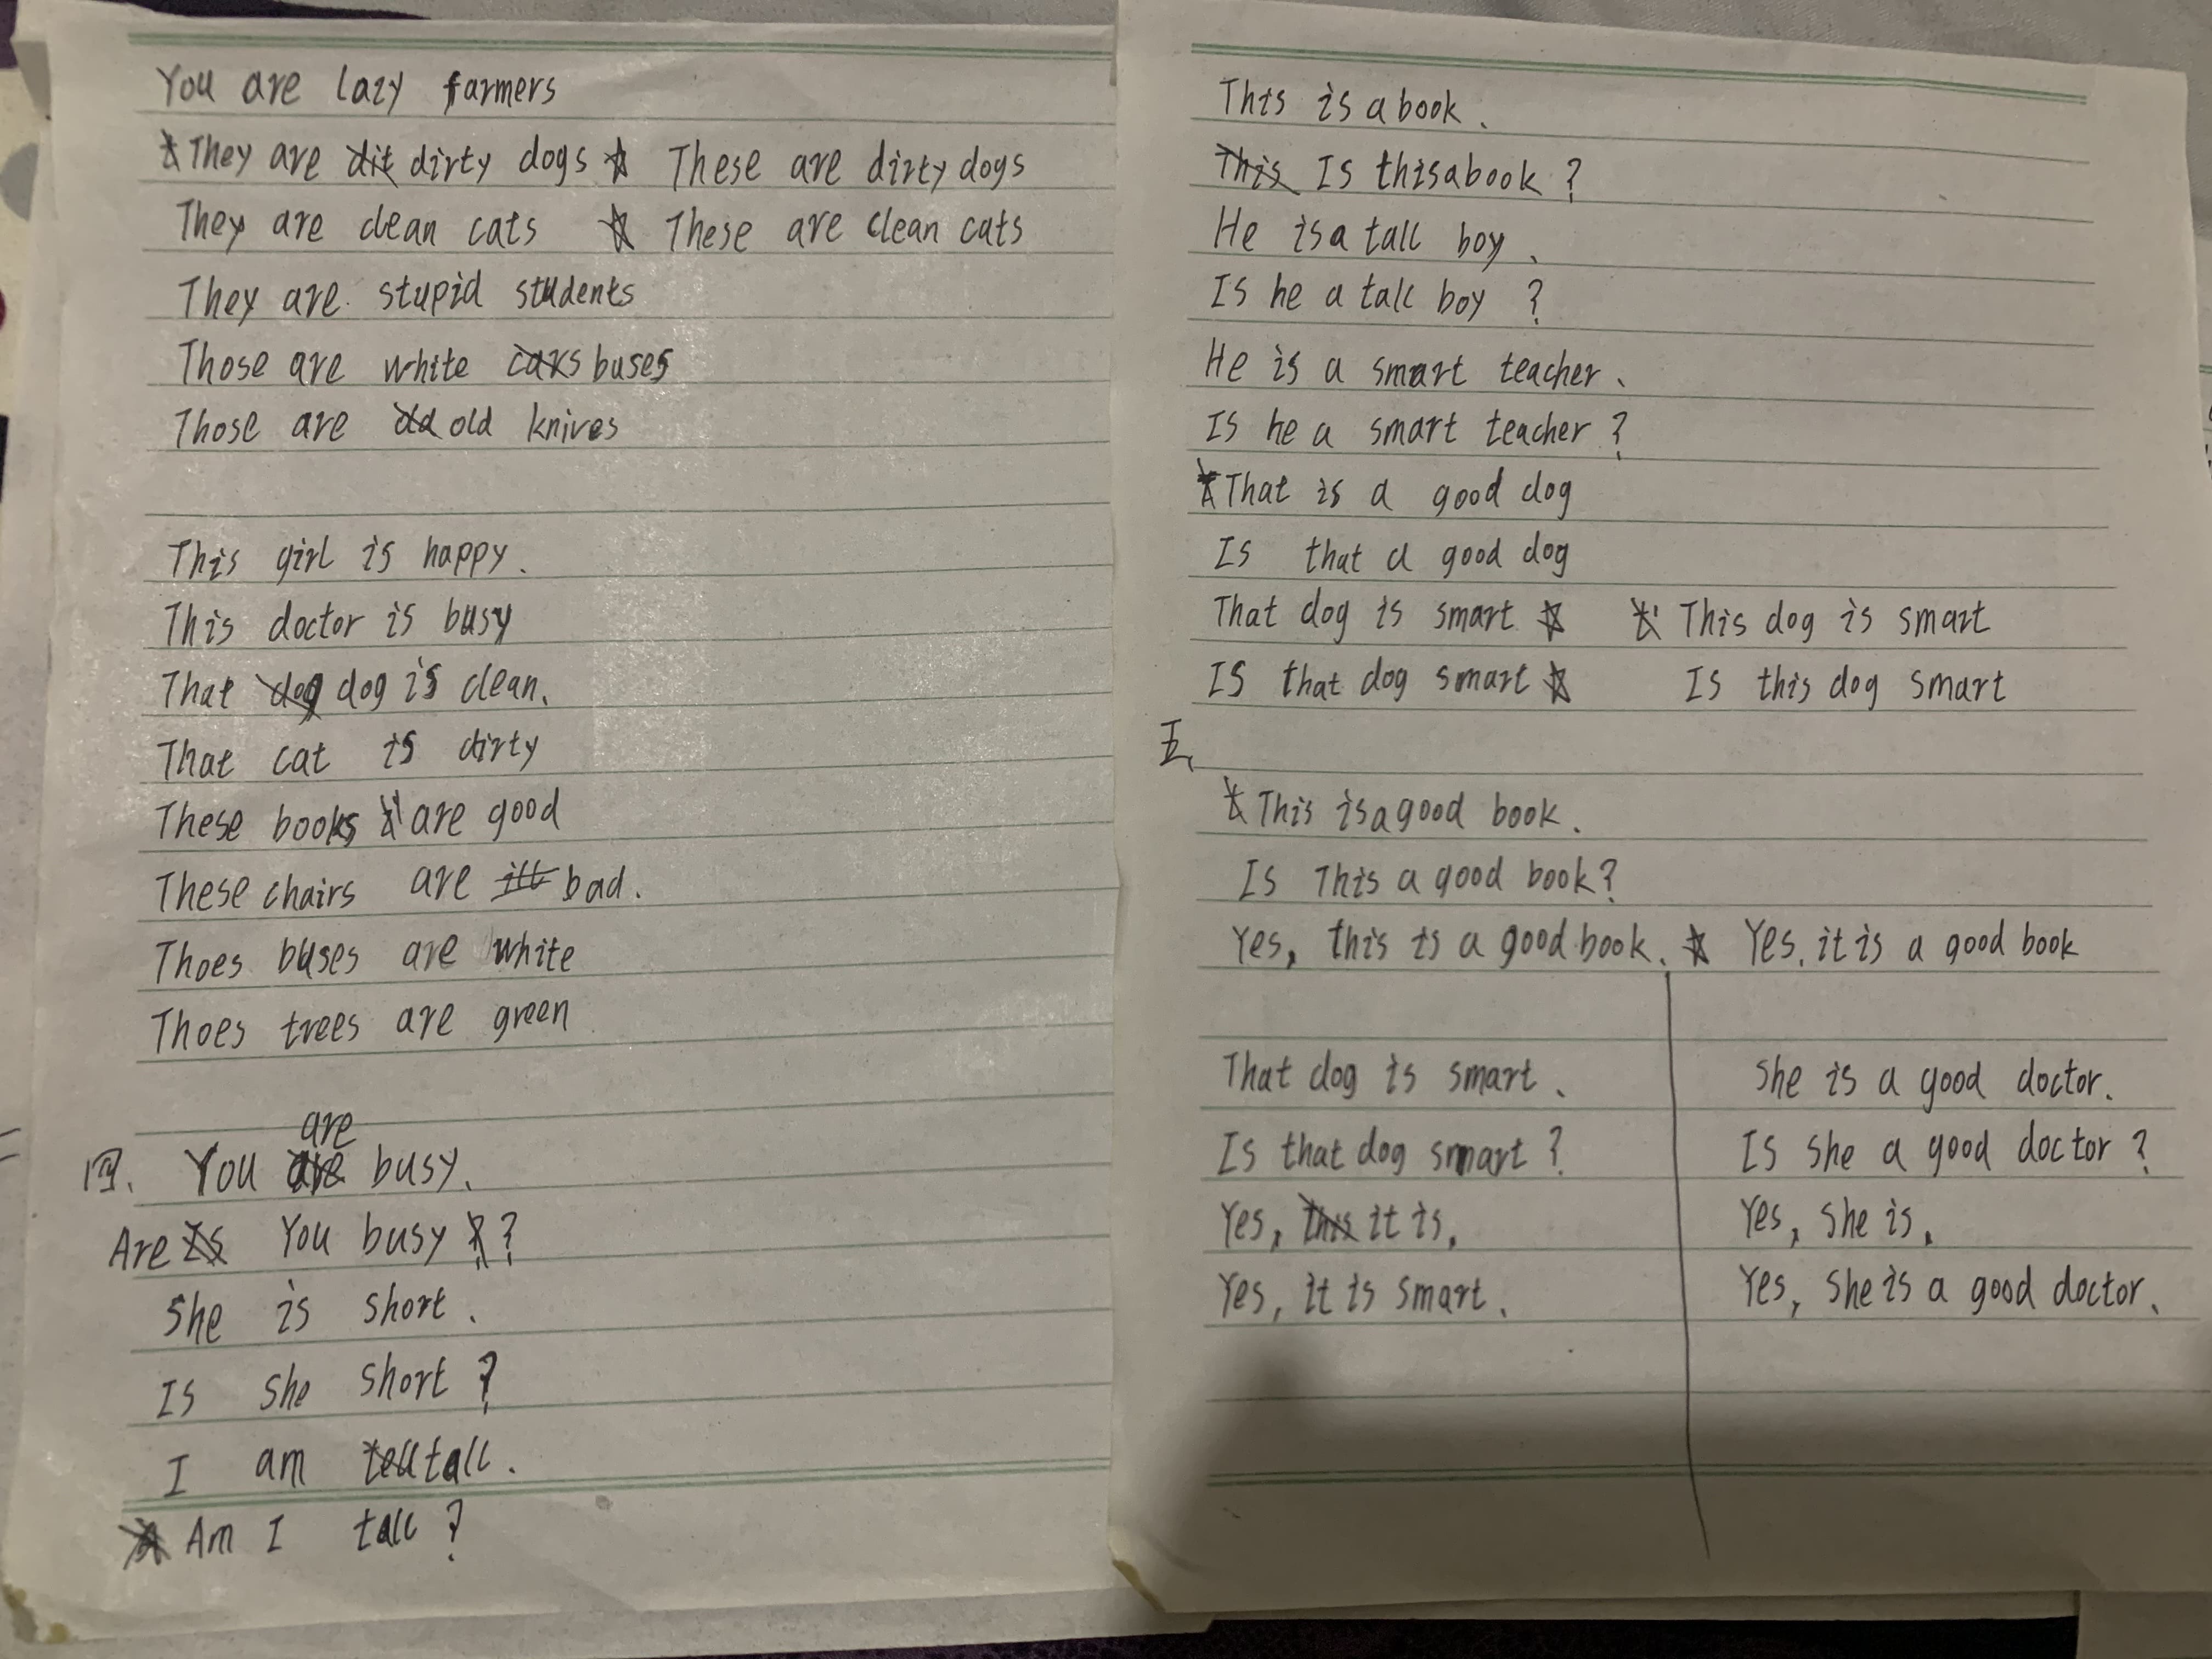 You are lazy farmers
☆They are dirty dogs ☆ These are dirty dogs
They are clean cats ☆ These are clean cats
They are stupid students
Those are white buses
Those are old knives
This girl is happy.
This doctor is busy
That dog is clean.
That cat is dirty
These books ☆ are good
These chairs are bad.
Thoes buses are white
Thoes trees are green
四. You are busy.
Are You busy ?
She is short.
Is she short ?
I am tall.
☆ Am I tall ?
This is a book.
Is this a book ?
He is a tall boy.
Is he a tall boy ?
He is a smart teacher.
Is he a smart teacher ?
☆That is a good dog
Is that a good dog
That dog is smart ☆ ☆ This dog is smart
Is that dog smart ☆ Is this dog smart
五、
☆This is a good book.
Is This a good book?
Yes, this is a good book. ☆ Yes, it is a good book
That dog is smart.
Is that dog smart ?
Yes, it is.
Yes, it is smart.
She is a good doctor.
Is she a good doctor ?
Yes, she is.
Yes, she is a good doctor.